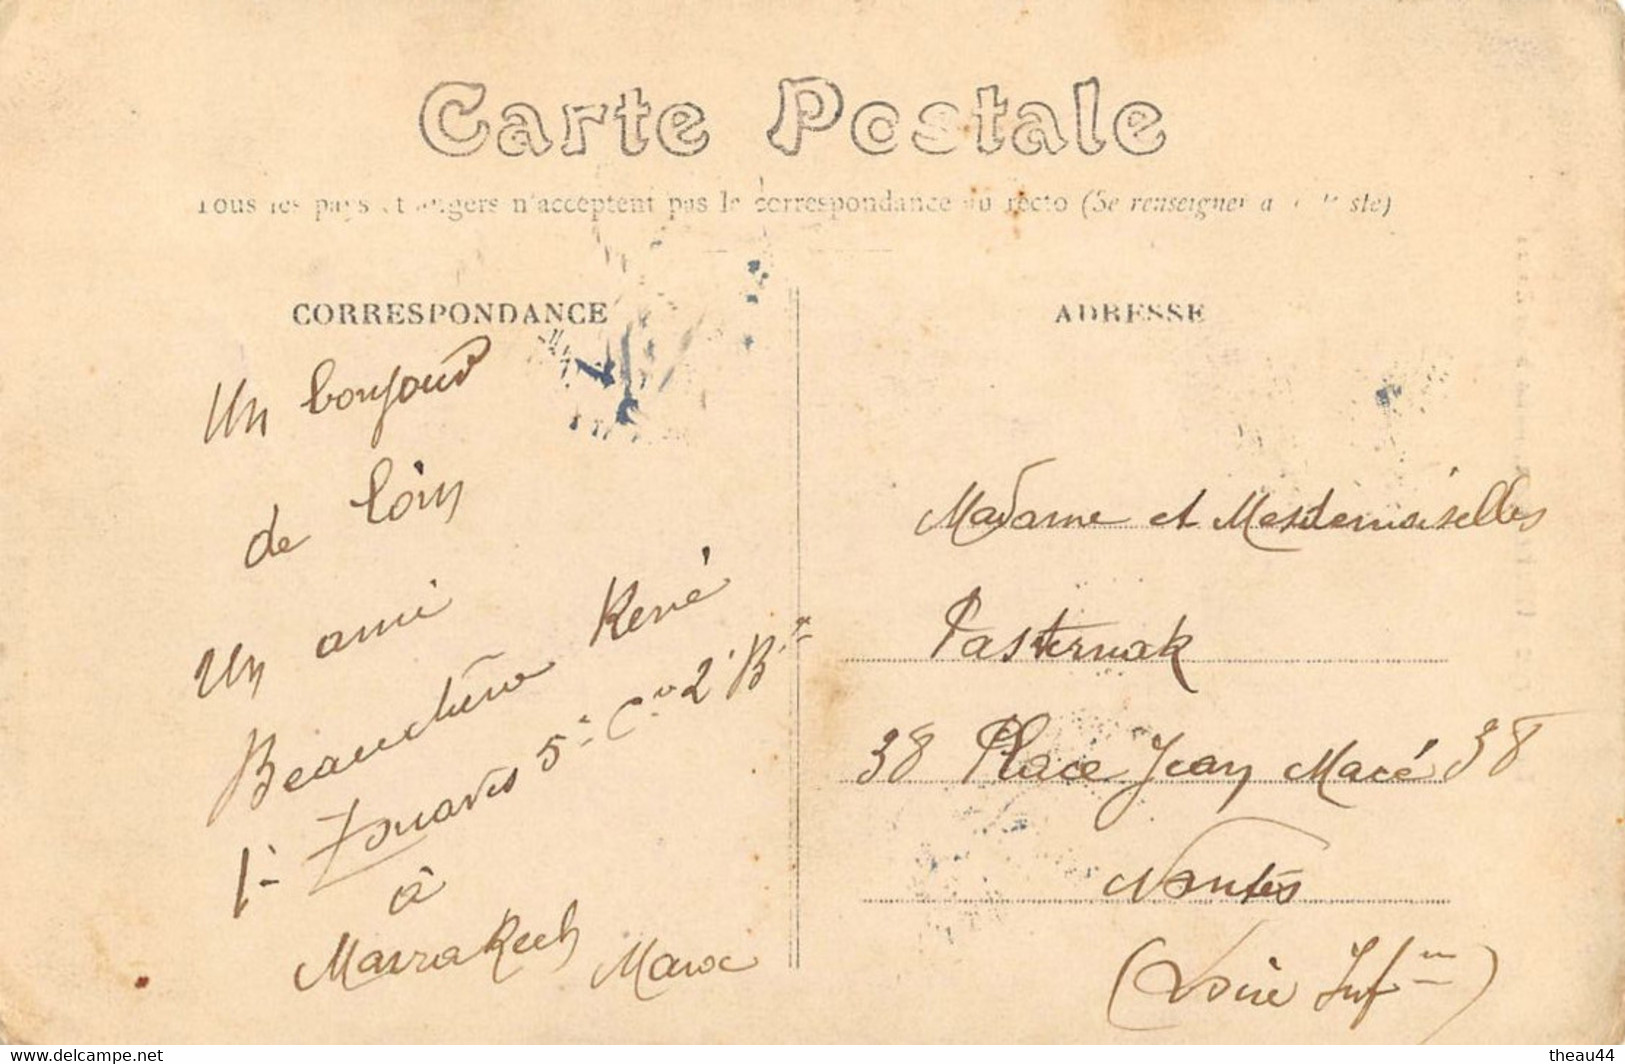 Carte Postale
Tous les pays étrangers n'acceptent pas la correspondance au recto (Se renseigner à la Poste)
CORRESPONDANCE
Un bonjour
de loin
Un ami
René
1e Zouaves 5e Cie 2e Bon
à
Marrakech Maroc
ADRESSE
Madame et Mesdemoiselles
Pasternak
38 Place Jean Macé 38
Nantes
(Loire Infre)
www.delcampe.net
theau44